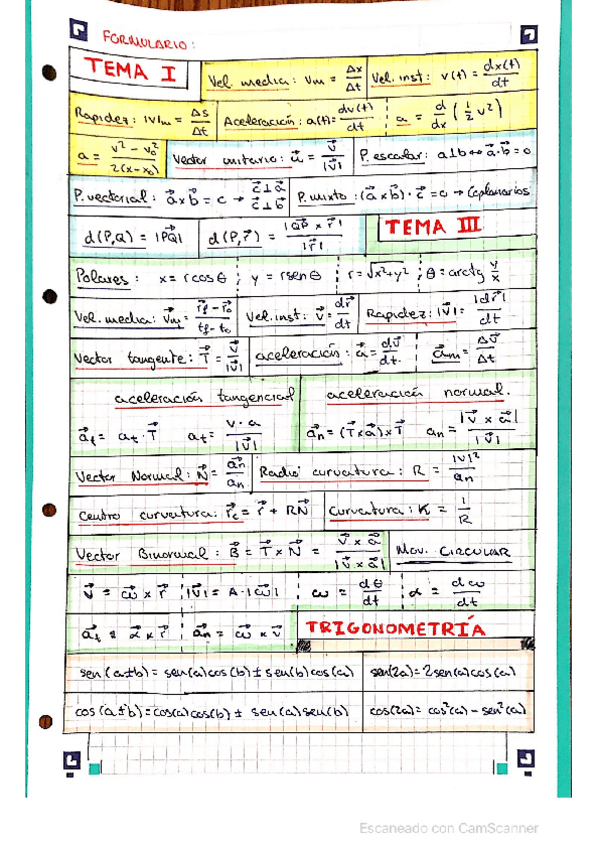 FORMULARIO:
TEMA I
Vel. media: Vm = Δx/Δt
Vel. inst: v(t) = dx(t)/dt
Rapidez: |v|m = Δs/Δt
Aceleración: a(t) = dv(t)/dt
a = d/dx (1/2 v²)
a = (v² - v₀²)/(2(x-x₀))
Vector unitario: u⃗ = v⃗/|v⃗|
P. escalar: a⊥b ↔ a⃗·b⃗ = 0
P. vectorial: a⃗ x b⃗ = c → c⃗⊥a⃗ c⃗⊥b⃗
P. mixto: (a⃗ x b⃗)·c⃗ = 0 → Coplanarios
d(P,Q) = |PQ⃗|
d(P,r⃗) = |QP⃗ x r⃗|/|r⃗|
TEMA III
Polares: x = r cos θ y = r sen θ r = √(x²+y²) ; θ = arctg y/x
Vel. media: v⃗m = (r⃗f - r⃗o)/(tf - to)
Vel. inst: v⃗ = dr⃗/dt
Rapidez: |v⃗| = |dr⃗|/dt
Vector tangente: T⃗ = v⃗/|v⃗|
aceleración: a⃗ = dv⃗/dt
a⃗m = Δv⃗/Δt
aceleración tangencial
a⃗t = at · T⃗ at = v·a/|v⃗|
aceleración normal.
a⃗n = (T⃗ x a⃗) x T⃗ an = |v⃗ x a⃗|/|v⃗|
Vector Normal: N⃗ = a⃗n/an
Radio curvatura: R = |v|²/an
Centro curvatura: r⃗c = r⃗ + RN⃗
Curvatura: K = 1/R
Vector Binormal: B⃗ = T⃗ x N⃗ = v⃗ x a⃗/|v⃗ x a⃗|
MOV. CIRCULAR
v⃗ = ω⃗ x r⃗ |v⃗| = A·|ω⃗| ω = dθ/dt α = dω/dt
a⃗t = α⃗ x r⃗ a⃗n = ω⃗ x v⃗
TRIGONOMETRÍA
sen(a±b) = sen(a)cos(b) ± sen(b)cos(a)
sen(2a) = 2sen(a)cos(a)
cos(a±b) = cos(a)cos(b) ± sen(a)sen(b)
cos(2a) = cos²(a) - sen²(a)
Escaneado con CamScanner